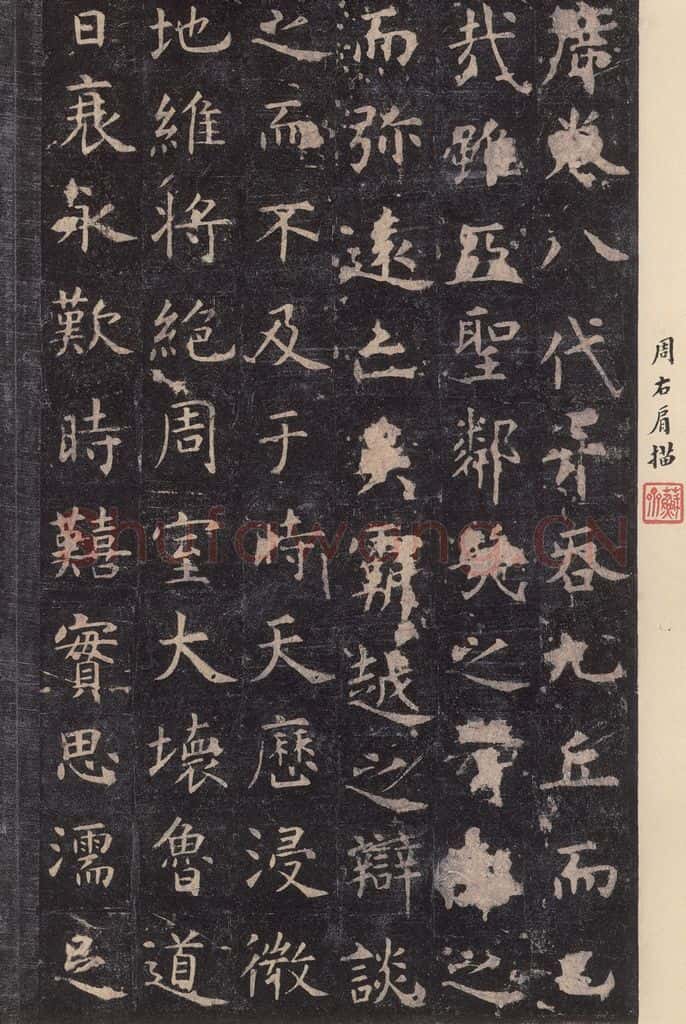 周右肩描
席卷八代并吞九丘而已
哉雖亞聖鄰幾之之
而弥遠亡吳霸越之辯談
之而不及于時天歷浸微
地維將絕周室大壞魯道
日衰永歎時囏實思濡足
Shufawang.CN